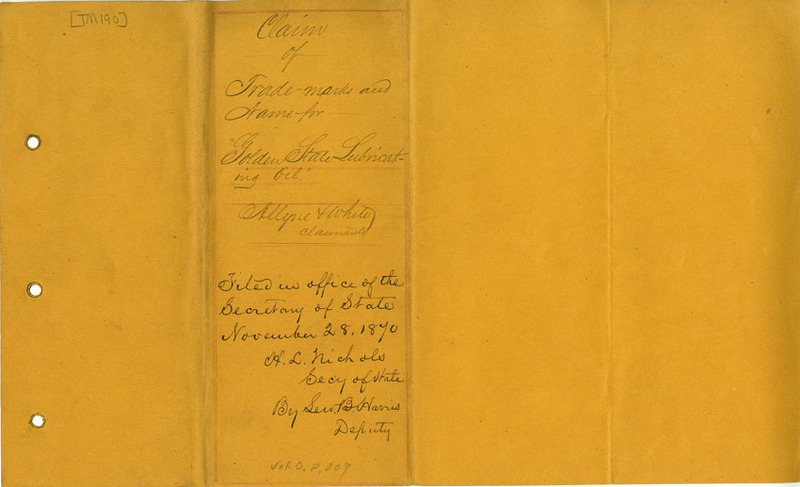 [TM190]
Claim
of
Trade-marks and
Name for
"Golden State Lubricat-
ing Oil."
Allyne & White
Claimants
Filed in office of the
Secretary of State
November 28, 1870
H. L. Nichols
Secy of State
By Lew. B. Harris
Deputy
Vol. O, P. 309